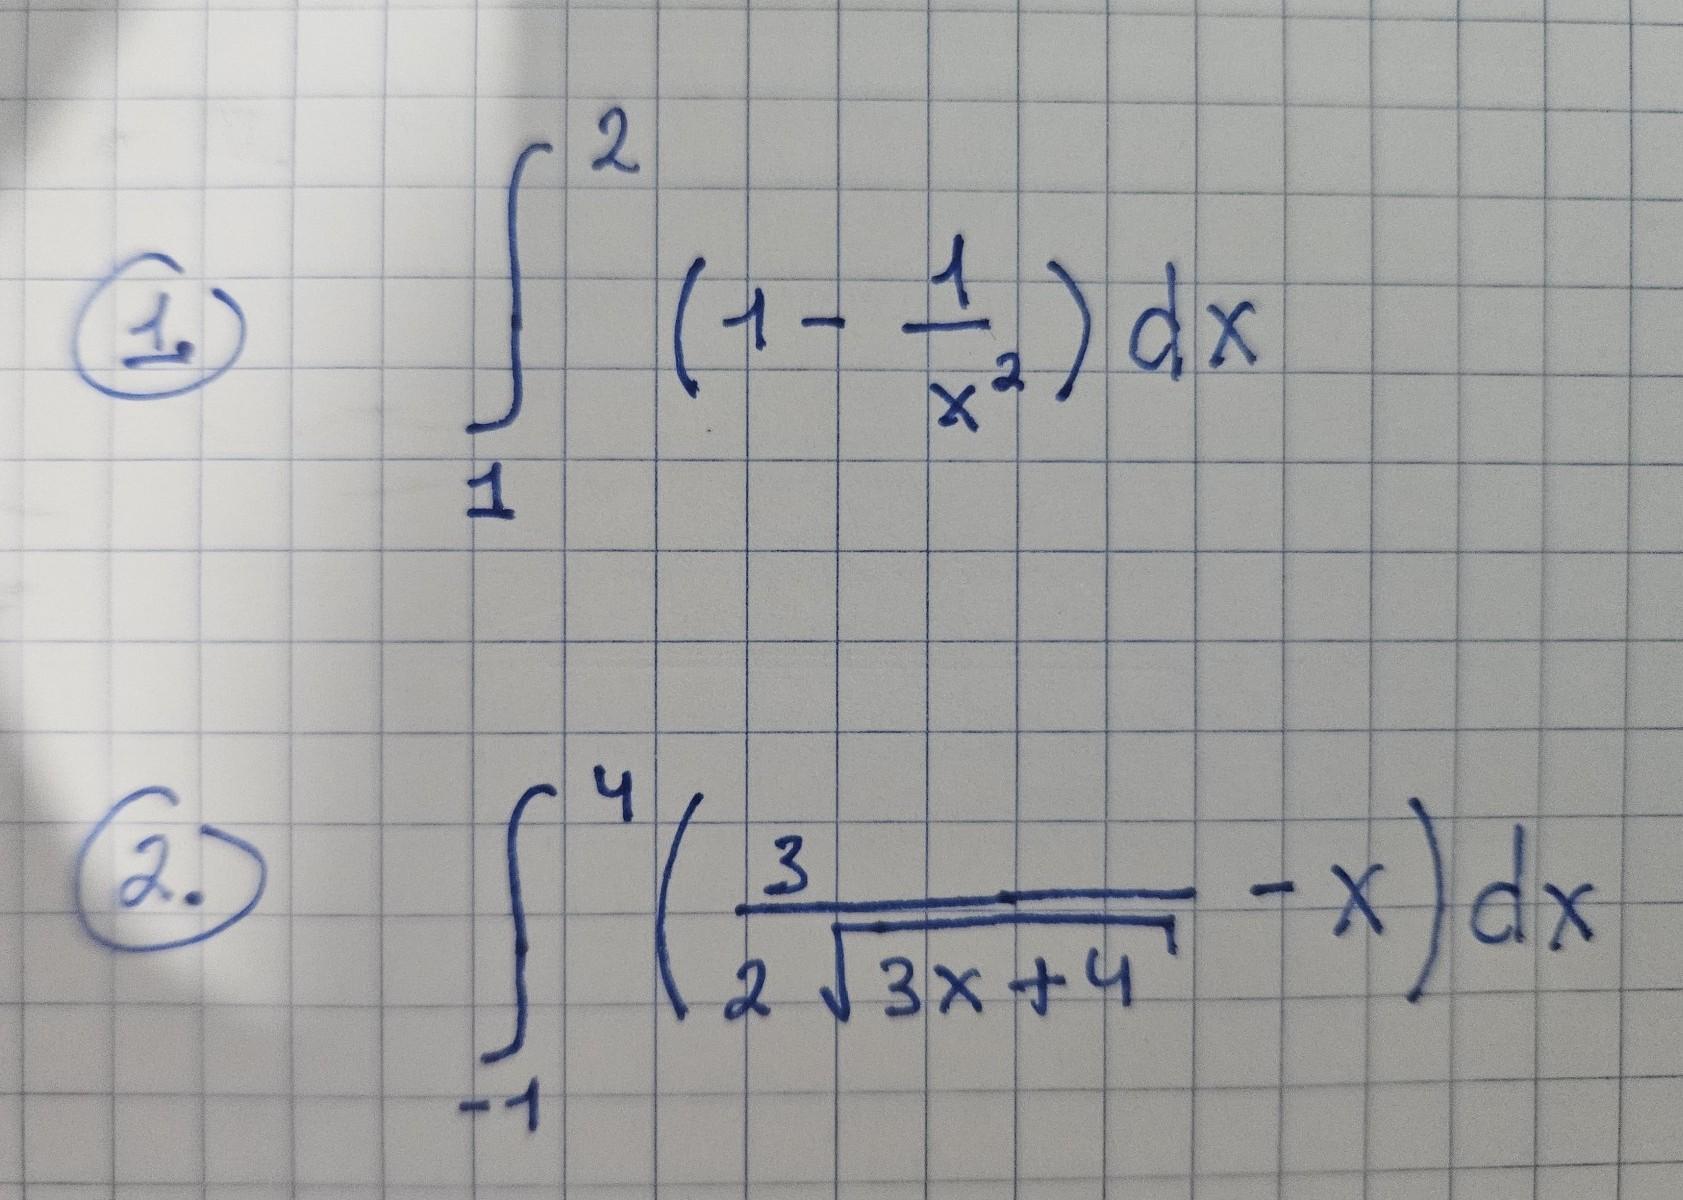 1. ∫₁² (1 - 1/x²) dx
2. ∫₋₁⁴ (3/(2√(3x+4)) - x) dx